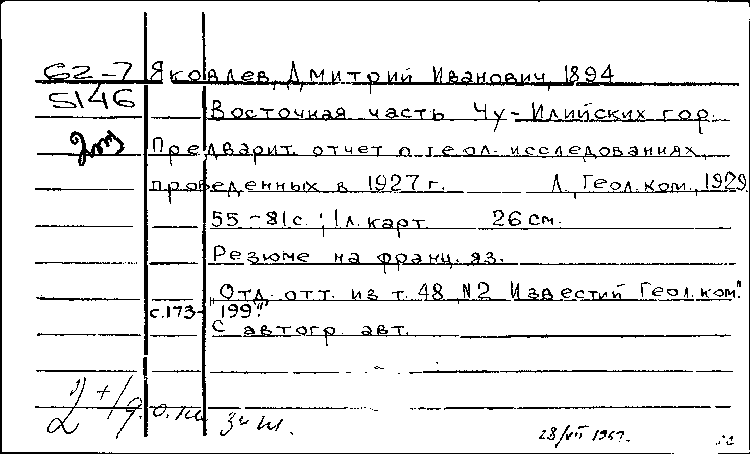 62-7 Яковлев, Дмитрий Иванович, 1894
5146 Восточная часть Чу-Илийских гор.
Предварит. отчет о геол. исследованиях,
проведенных в 1927 г. Л., Геол. ком., 1929
55-81 с.; 1 л. карт. 26 см.
Резюме на франц. яз.
"Отд. отт. из т. 48, N2 Известий Геол. ком."
с. 173-199."
С автогр. авт.
28/VII 1967.